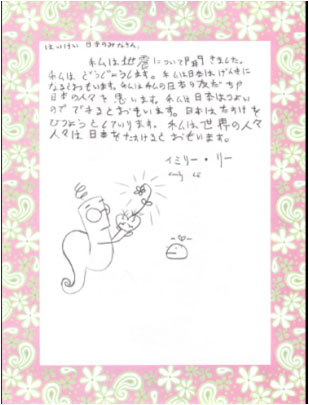 はいけい 日本のみなさん、
私は地震について聞きました。
私はどうじょうします。私は日本はげんきに
なるとおもいます。私は私の日本の友だちや
日本の人々を思います。私は日本はつよい
のでできるとおもいます。日本はたすけを
ひつようとしています。私は世界の人々
人々は日本をたすけるとおもいます。
イミリー・リー
Emily